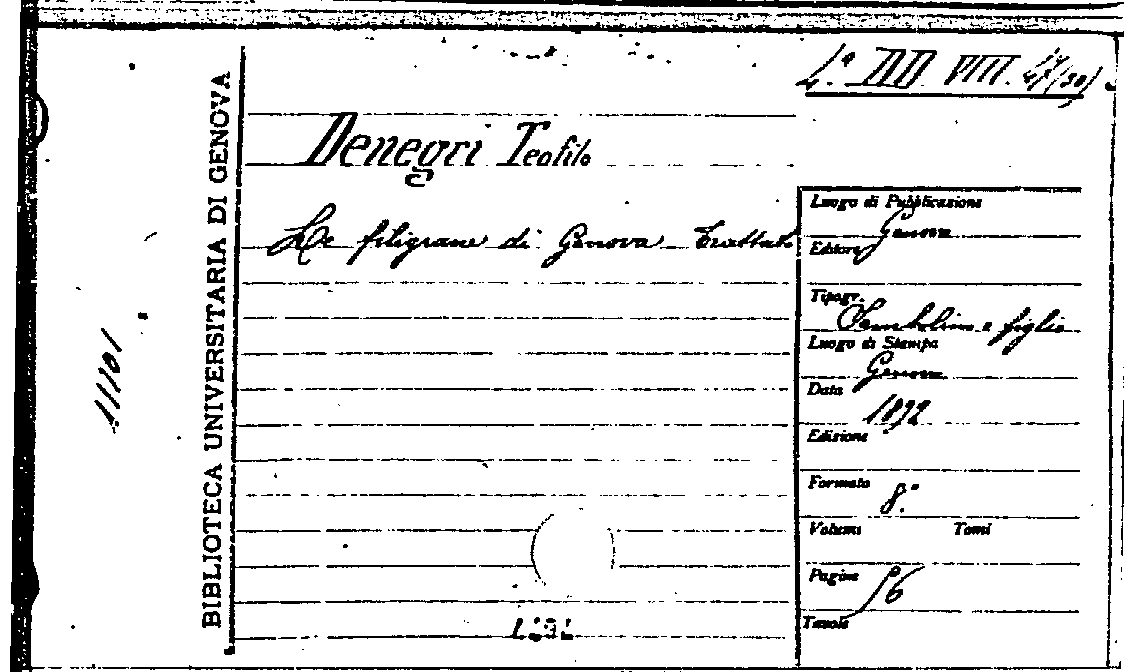 4.ª DD. VIII. 47(30)
BIBLIOTECA UNIVERSITARIA DI GENOVA
Denegri Teofilo
Le filigrane di Genova Trattato
Luogo di Pubblicazione
Genova
Editore
Tipogr.
e figlio
Luogo di Stampa
Genova
Data
1892
Edizione
Formato
8.º
Volumi Tomi
Pagine
56
Tavole
11101